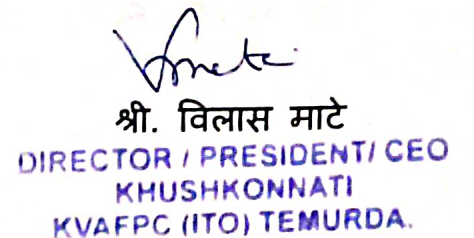 Vmate
श्री. विलास माटे
DIRECTOR / PRESIDENT/ CEO
KHUSHKONNATI
KVAFPC (ITO) TEMURDA.